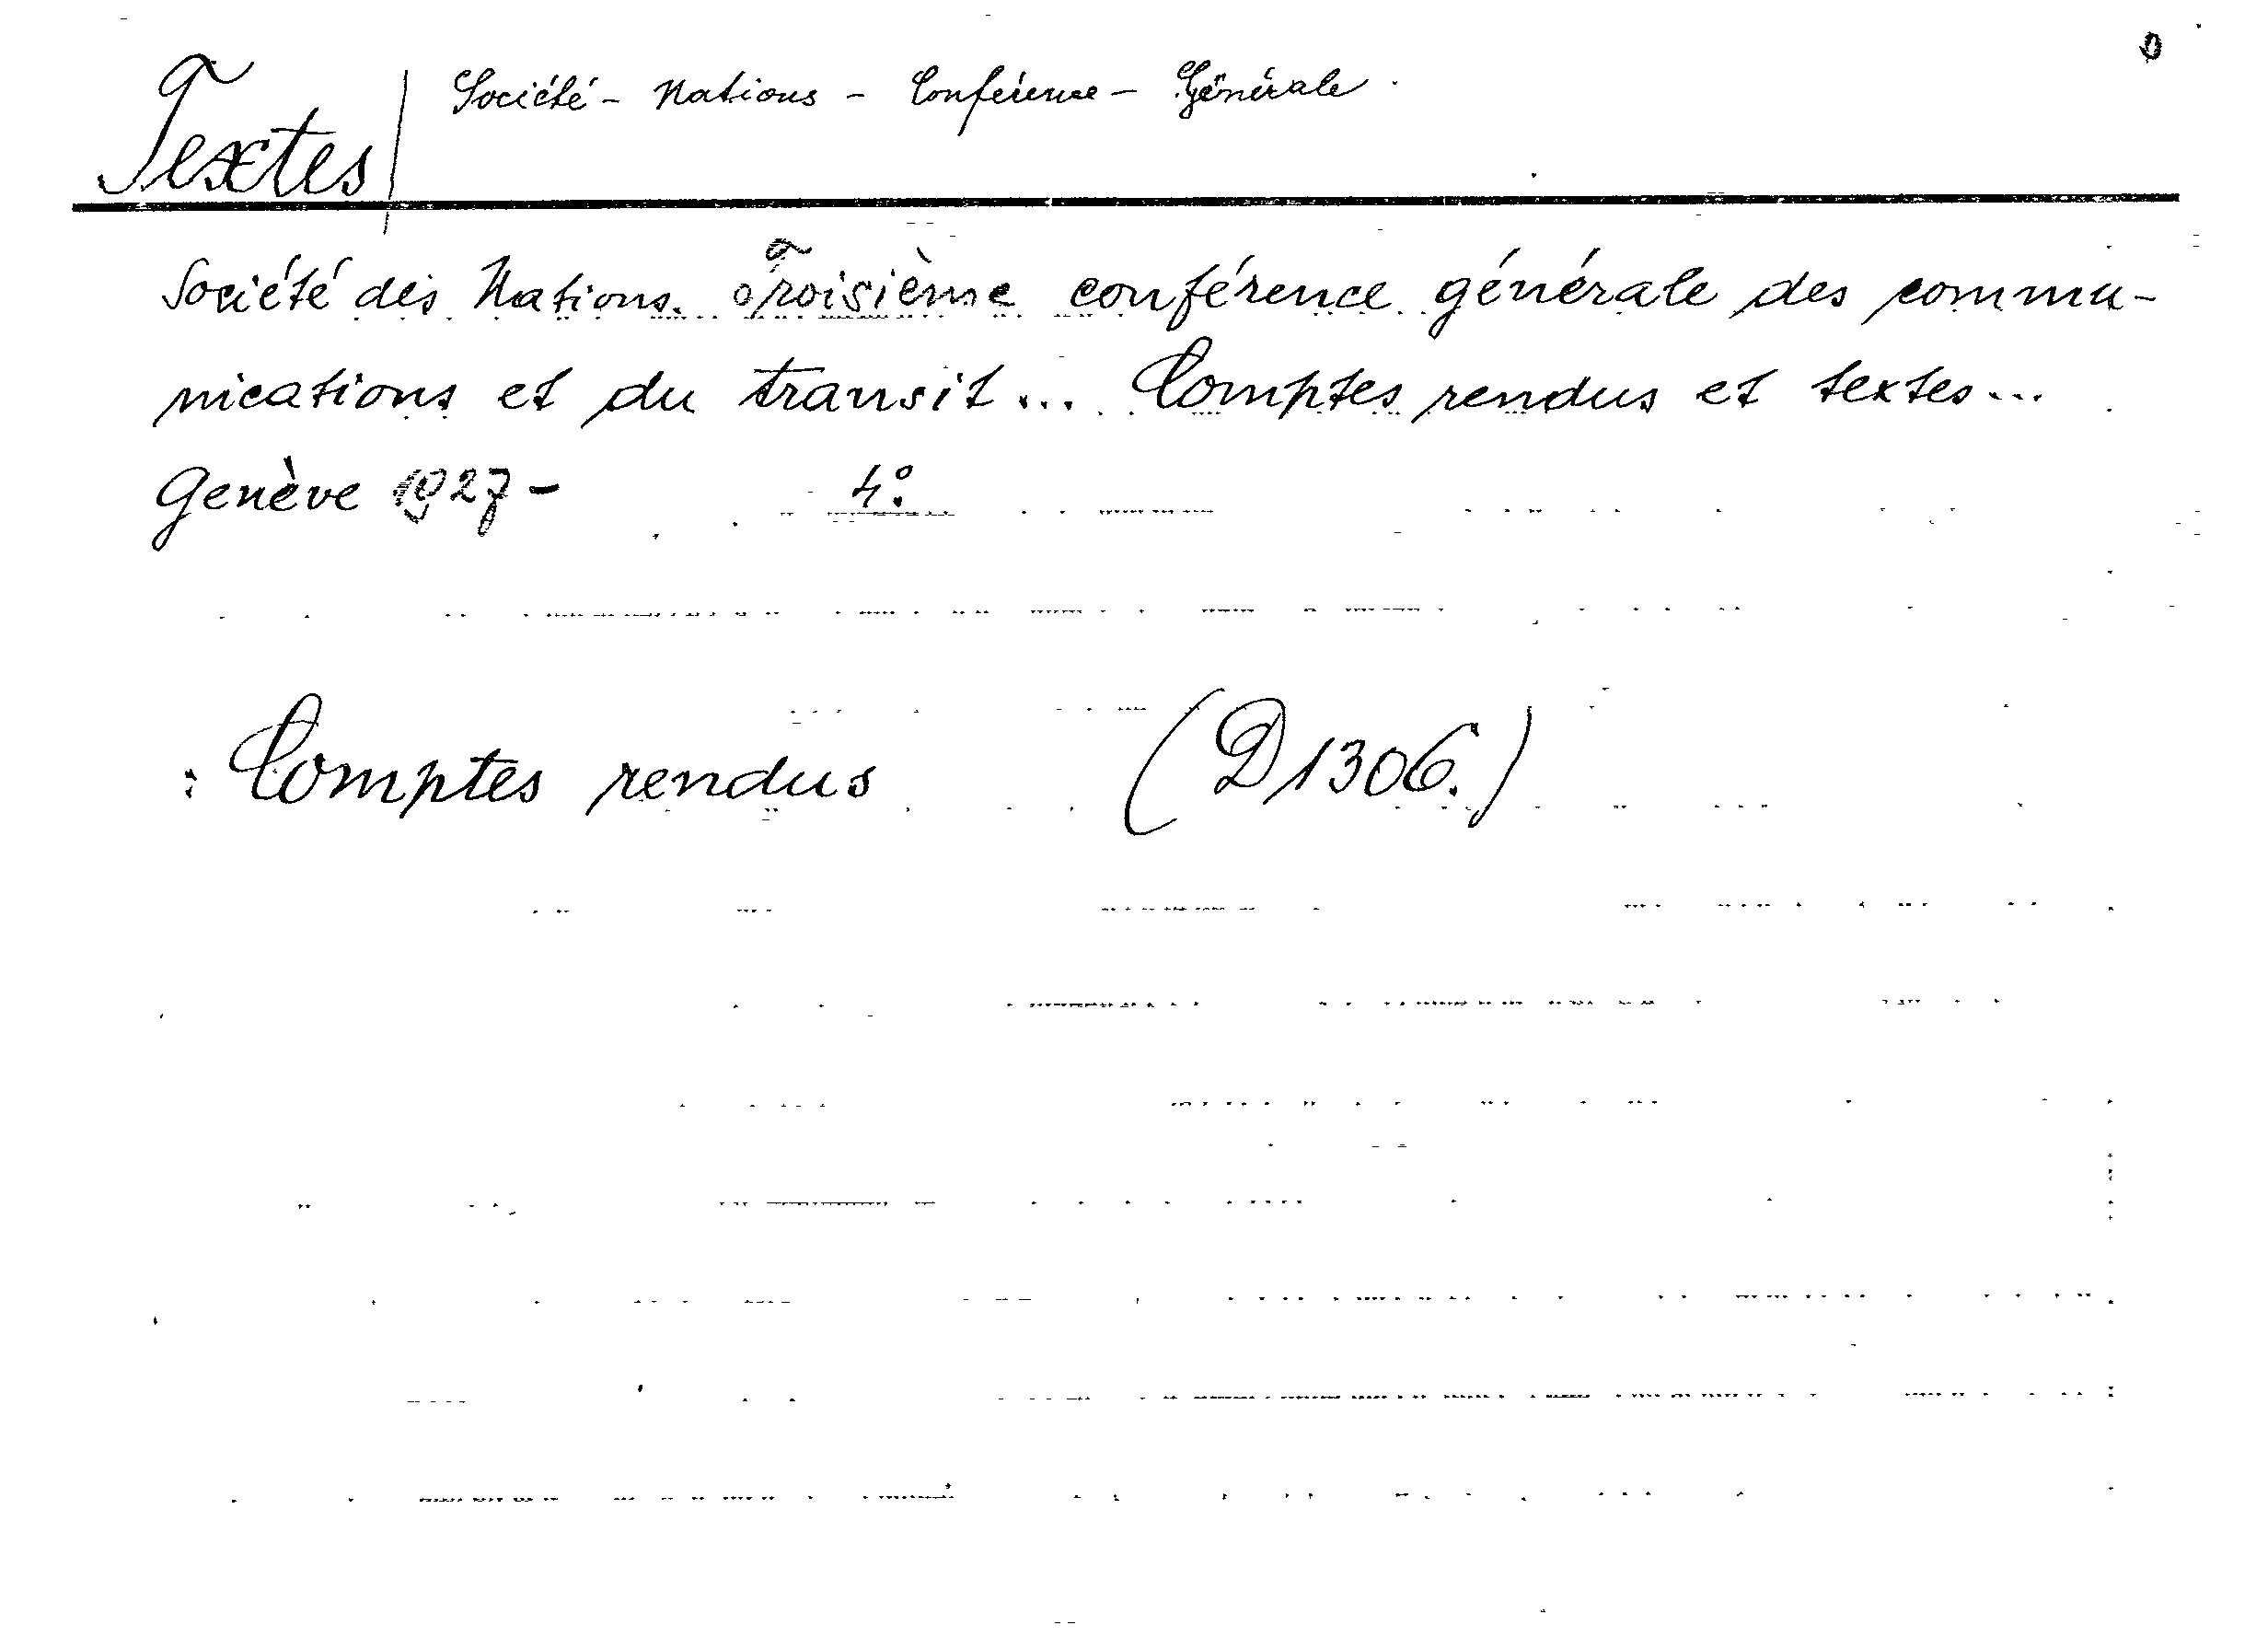 Société - Nations - Conférence - Générale.
Textes
Société des Nations. Troisième conférence générale des commu-
nications et du transit... Comptes rendus et textes...
Genève 1927 - 4°.
: Comptes rendus (D1306.)